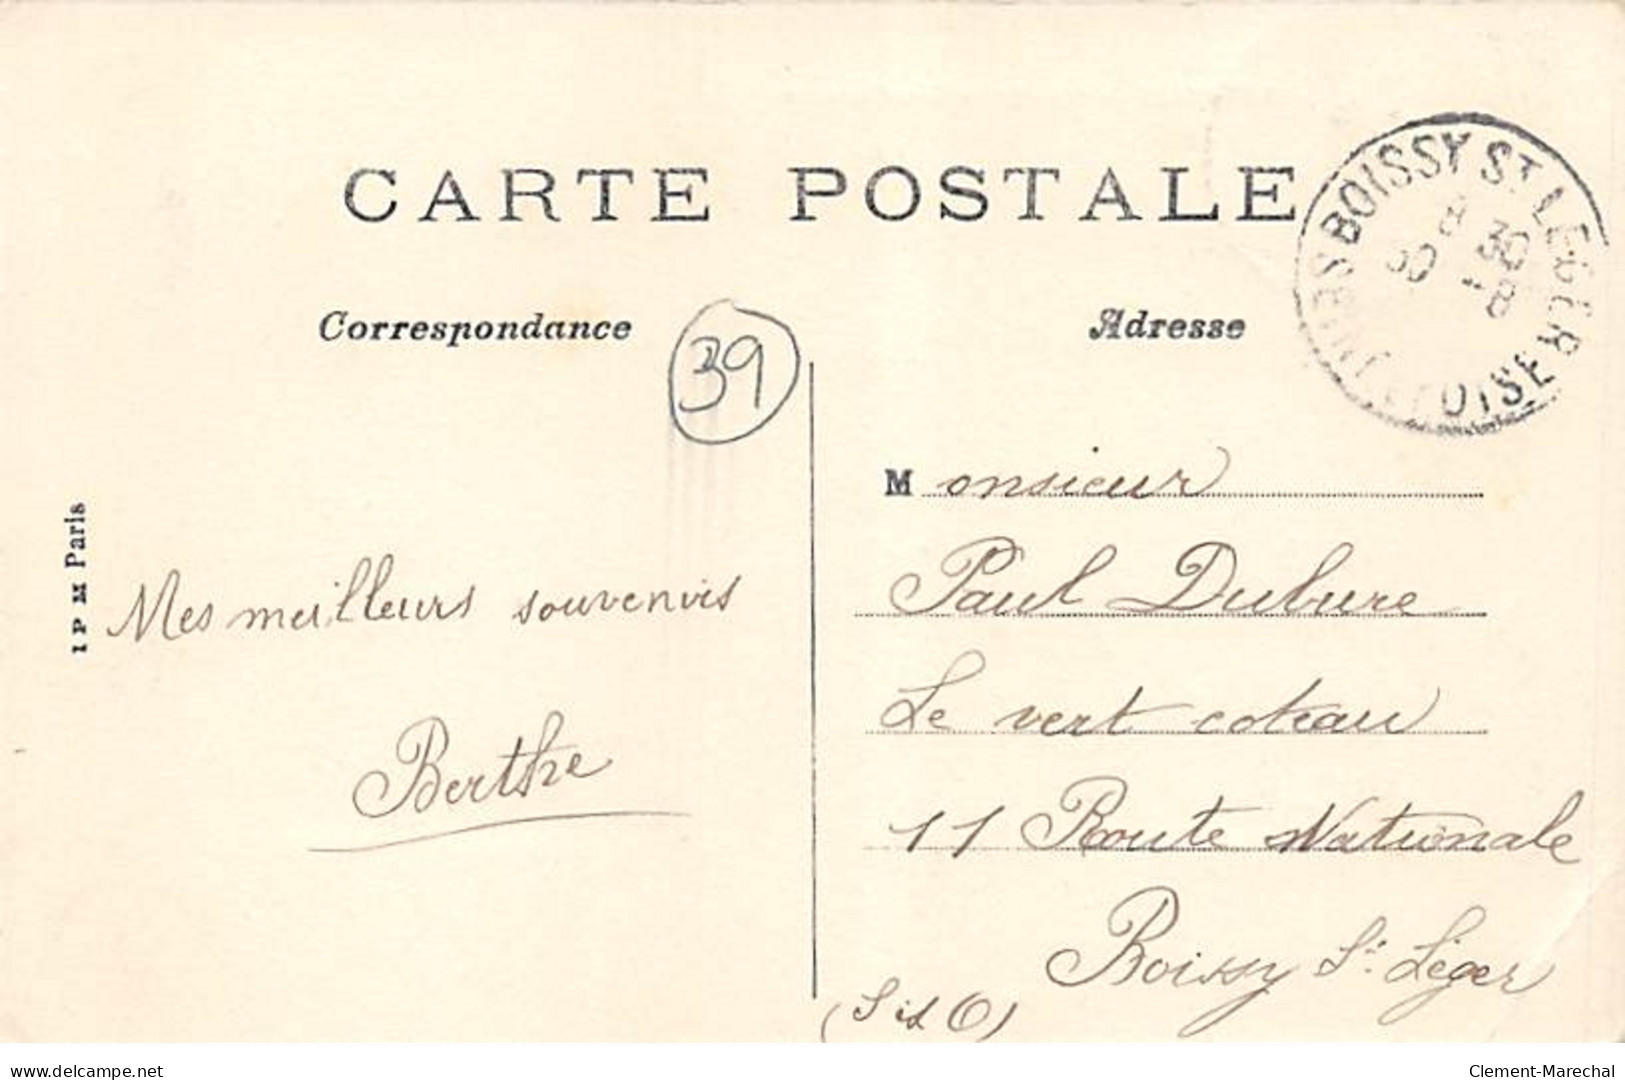 CARTE POSTALE
BOISSY ST LEGER
8 30
30 -8
OISE
Correspondance
Adresse
39
Monsieur
Paul Dubure
Le vert coteau
11 Route Nationale
Boissy St. Léger
(S et O)
1 P M Paris
Mes meilleurs souvenirs
Berthe
delcampe.net
Clement-Marechal